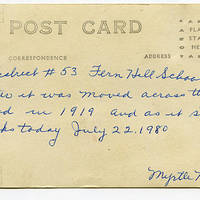 POST CARD
CORRESPONDENCE ADDRESS
District # 53 Fern Hill School
it was moved across the
in 1919 and as it
today July 22, 1980
Myrtle